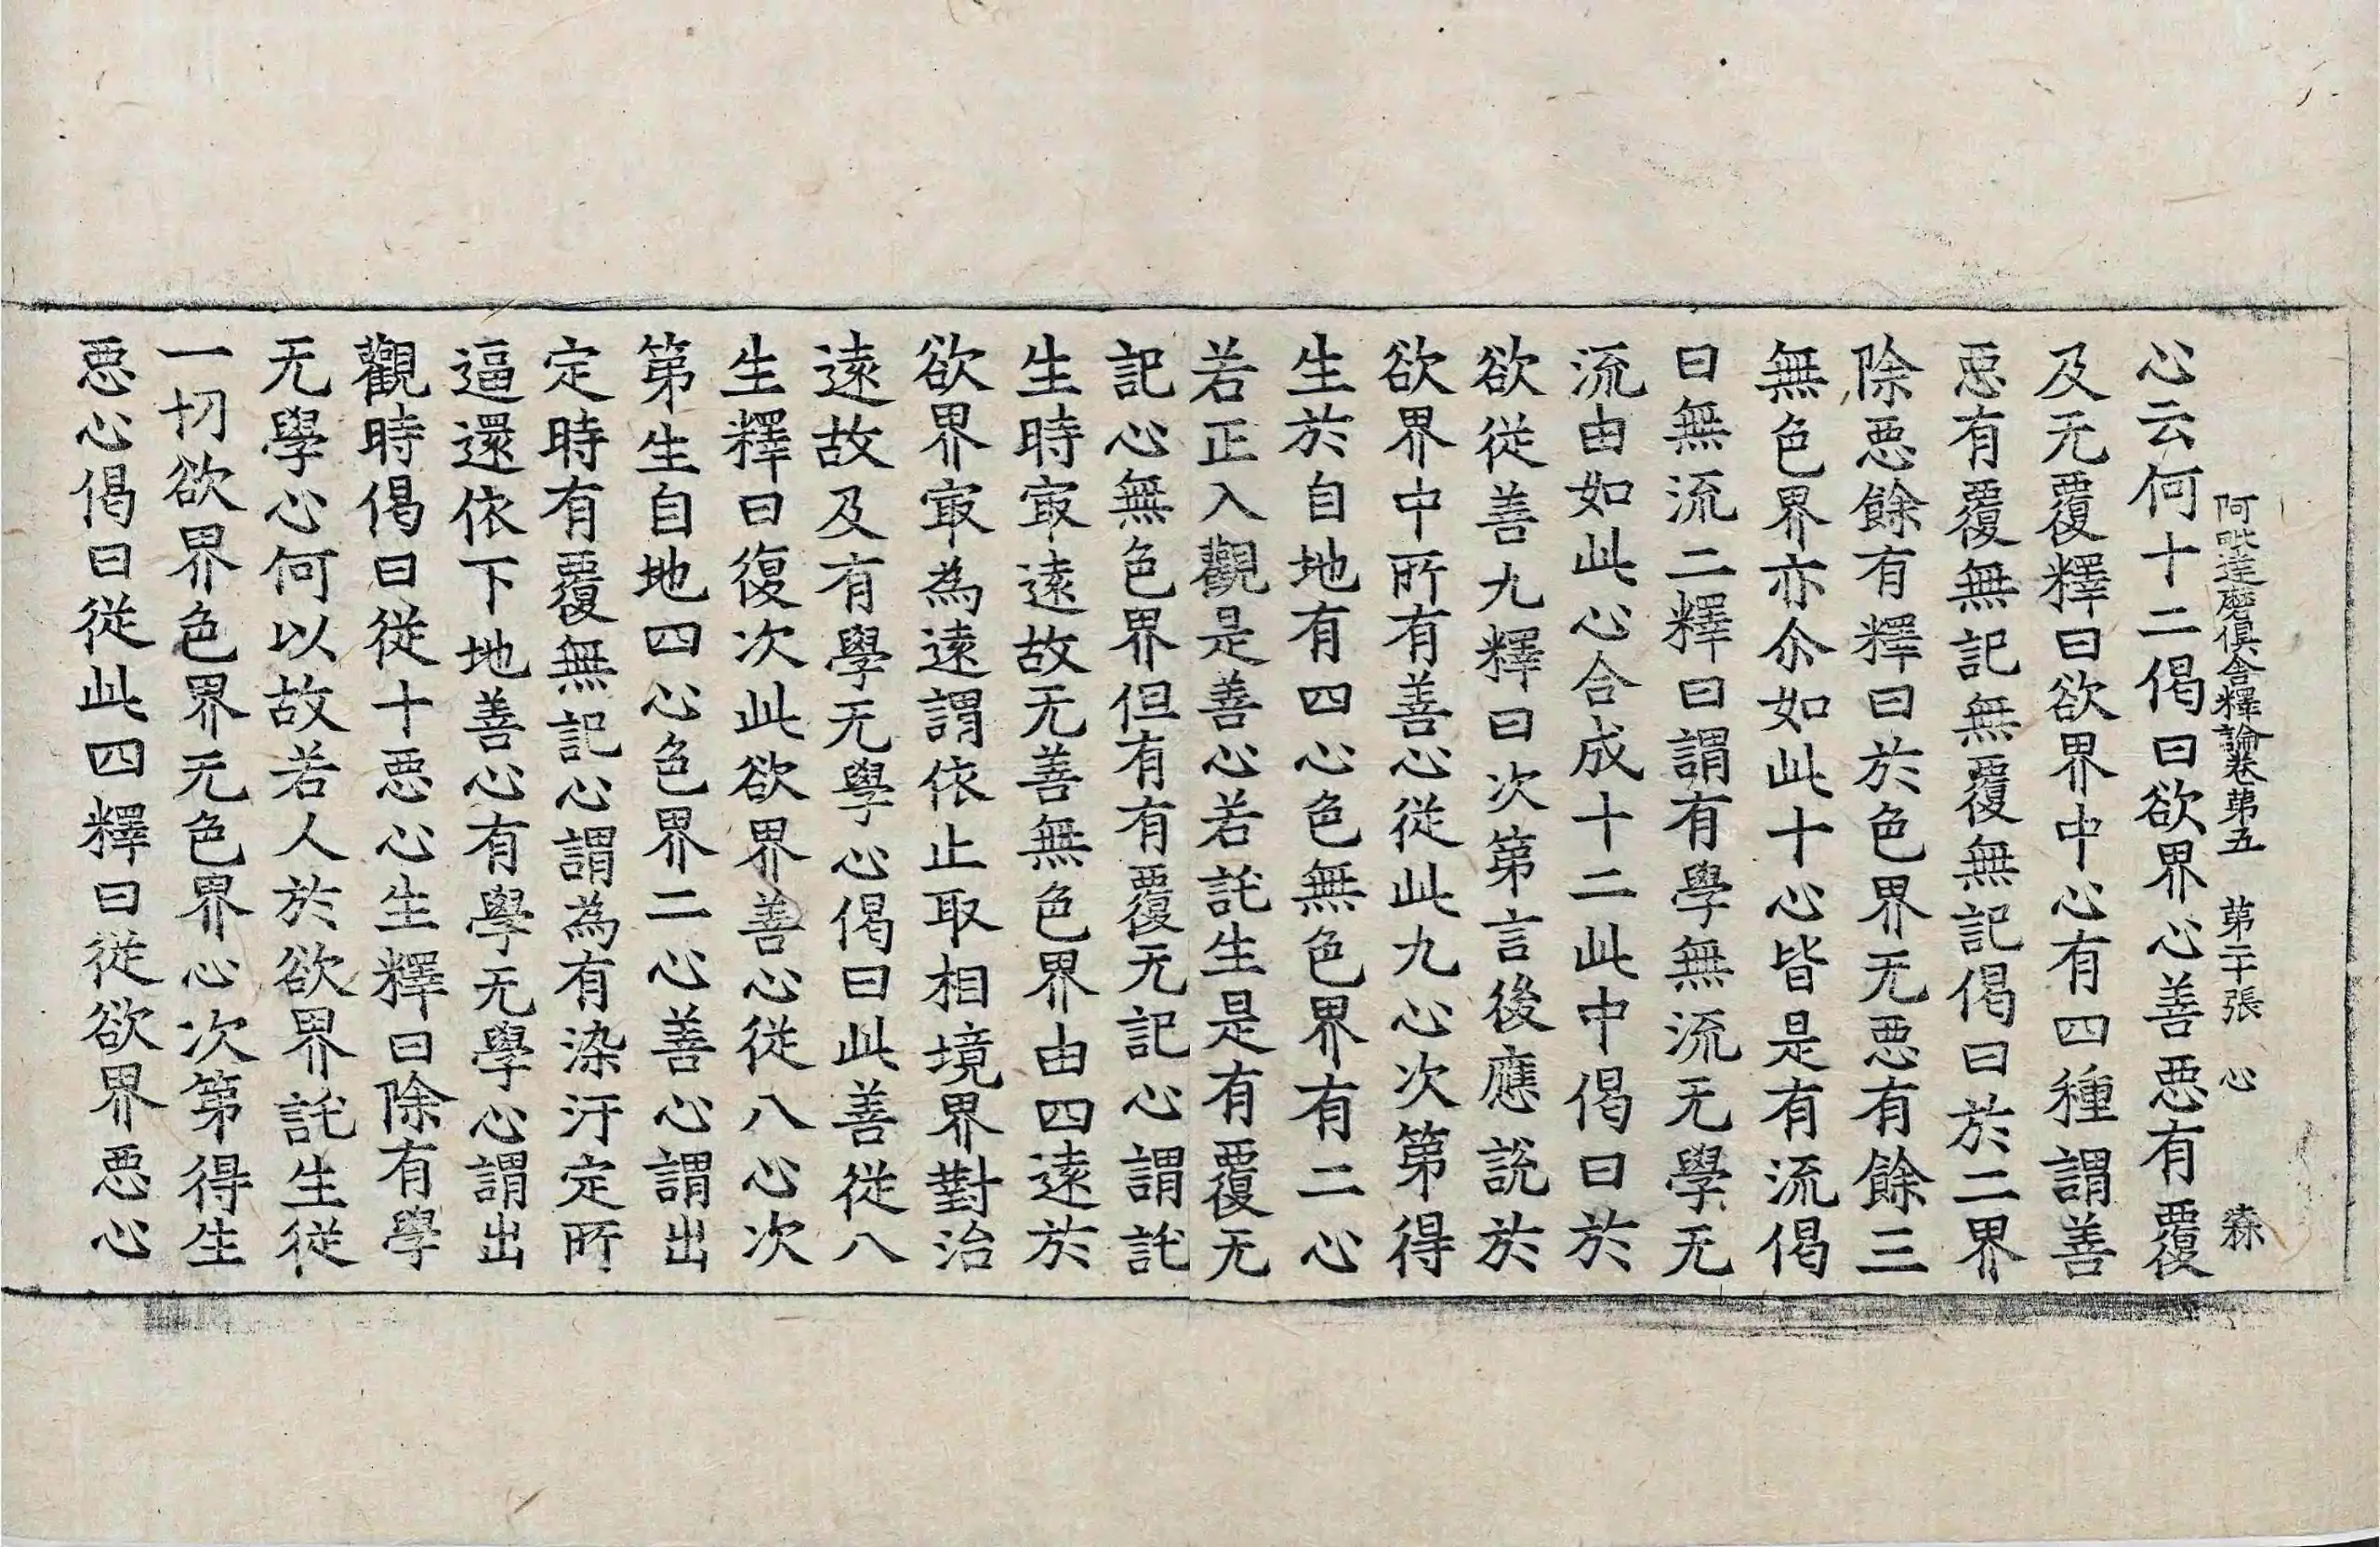 阿毗達磨俱舍釋論卷第五　第二十張　心　森
心云何十二偈曰欲界心善惡有覆
及无覆釋曰欲界中心有四種謂善
惡有覆無記無覆無記偈曰於二界
除惡餘有釋曰於色界无惡有餘三
無色界亦尒如此十心皆是有流偈
曰無流二釋曰謂有學無流无學无
流由如此心合成十二此中偈曰於
欲從善九釋曰次第言後應說於
欲界中所有善心從此九心次第得
生於自地有四心色無色界有二心
若正入觀是善心若託生是有覆无
記心無色界但有有覆无記心謂託
生時㝡遠故无善無色界由四遠於
欲界㝡為遠謂依止取相境界對治
遠故及有學无學心偈曰此善從八
生釋曰復次此欲界善心從八心次
第生自地四心色界二心善心謂出
定時有覆無記心謂為有染汙定所
逼還依下地善心有學无學心謂出
觀時偈曰從十惡心生釋曰除有學
无學心何以故若人於欲界託生從
一切欲界色界无色界心次第得生
惡心偈曰從此四釋曰從欲界惡心